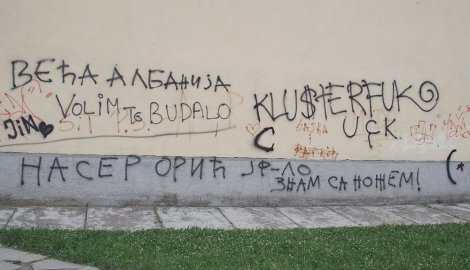 ВЕЋА АЛБАНИЈА
VOLIM Te BUDALO
JiM
KLU$TERFUK
UÇK
НАСЕР ОРИЋ
ЗНАМ СА НОЖЕМ!